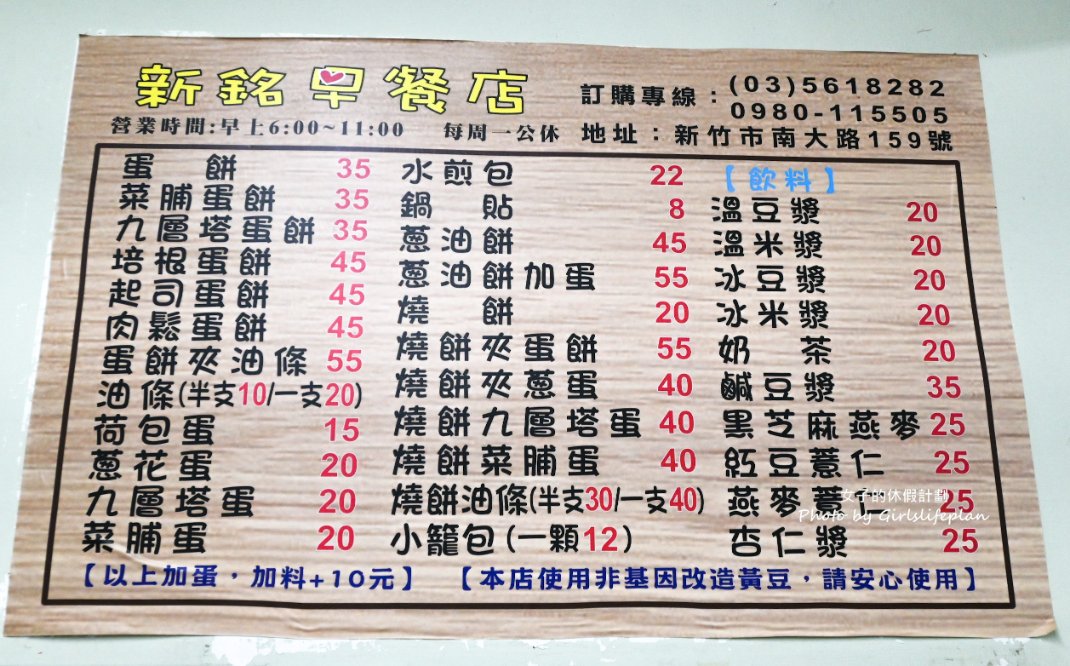 新銘早餐店
訂購專線：(03)5618282
0980-115505
營業時間:早上6:00~11:00 每周一公休
地址：新竹市南大路159號
蛋餅 35
菜脯蛋餅 35
九層塔蛋餅 35
培根蛋餅 45
起司蛋餅 45
肉鬆蛋餅 45
蛋餅夾油條 55
油條(半支10/一支20)
荷包蛋 15
蔥花蛋 20
九層塔蛋 20
菜脯蛋 20
水煎包 22
鍋貼 8
蔥油餅 45
蔥油餅加蛋 55
燒餅 20
燒餅夾蛋餅 55
燒餅夾蔥蛋 40
燒餅九層塔蛋 40
燒餅菜脯蛋 40
燒餅油條(半支30/一支40)
小籠包(一顆12)
【飲料】
溫豆漿 20
溫米漿 20
冰豆漿 20
冰米漿 20
奶茶 20
鹹豆漿 35
黑芝麻燕麥 25
紅豆薏仁 25
燕麥薏 25
杏仁漿 25
【以上加蛋，加料+10元】
【本店使用非基因改造黃豆，請安心使用】
女子的休假計劃
Photo by Girlslifeplan